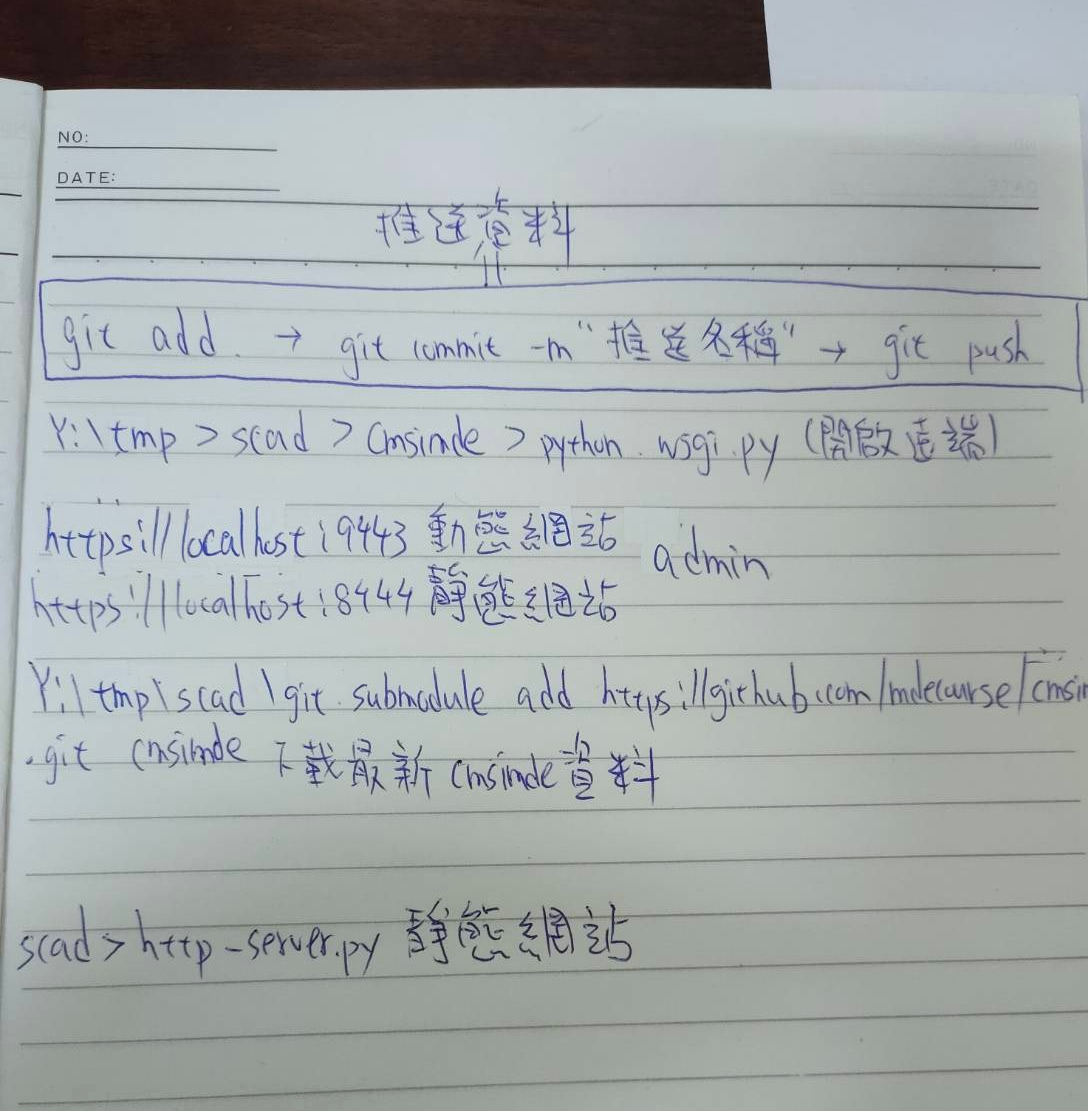 NO:
DATE:
推送資料
git add. → git commit -m "推送名稱" → git push
Y:\tmp > scad > cmsimde > python. wsgi.py (開啟遠端)
https://localhost:9443 動態網站 admin
https://localhost:8444 靜態網站
Y:\tmp\scad\git submodule add https://github.com/mdecourse/cmsim
.git cmsimde 下載最新 cmsimde 資料
scad > http-server.py 靜態網站